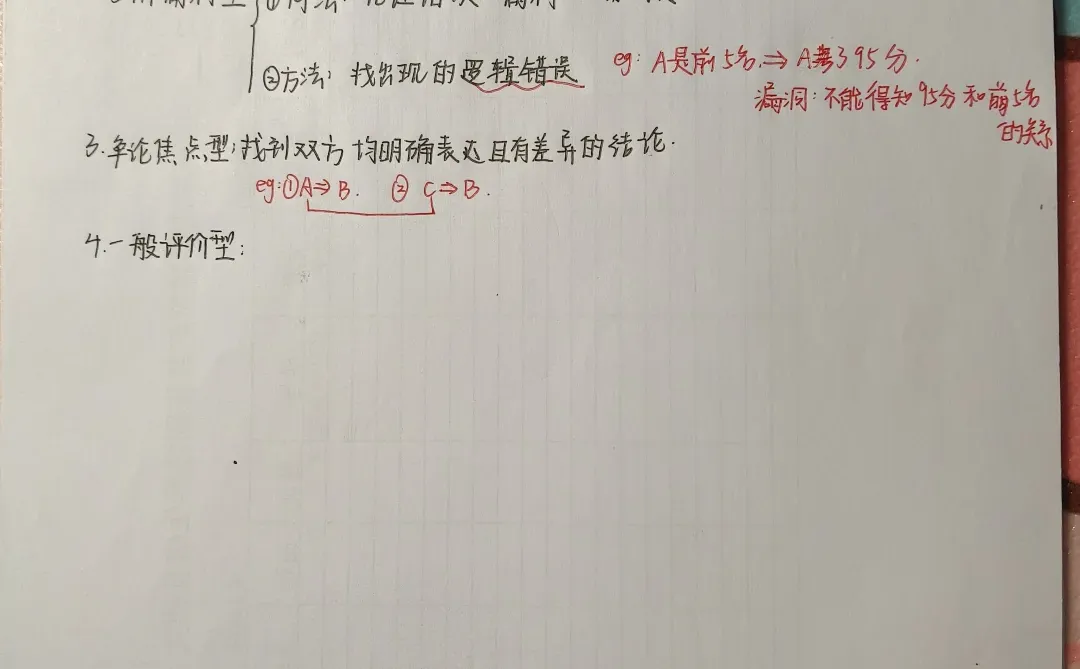 ①方法:
②方法: 找出现的逻辑错误
eg: A是前5名 ⇒ A考了95分.
漏洞: 不能得知95分和前5名
的关系
3.争论焦点型: 找到双方均明确表达且有差异的结论.
eg: ① A⇒B. ② C⇒B.
4.一般评价型: